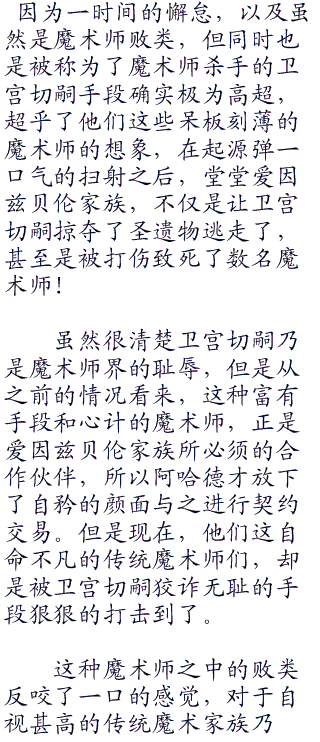 因为一时间的懈怠，以及虽
然是魔术师败类，但同时也
是被称为了魔术师杀手的卫
宫切嗣手段确实极为高超，
超乎了他们这些呆板刻薄的
魔术师的想象，在起源弹一
口气的扫射之后，堂堂爱因
兹贝伦家族，不仅是让卫宫
切嗣掠夺了圣遗物逃走了，
甚至是被打伤致死了数名魔
术师！
虽然很清楚卫宫切嗣乃
是魔术师界的耻辱，但是从
之前的情况看来，这种富有
手段和心计的魔术师，正是
爱因兹贝伦家族所必须的合
作伙伴，所以阿哈德才放下
了自矜的颜面与之进行契约
交易。但是现在，他们这自
命不凡的传统魔术师们，却
是被卫宫切嗣狡诈无耻的手
段狠狠的打击到了。
这种魔术师之中的败类
反咬了一口的感觉，对于自
视甚高的传统魔术家族乃